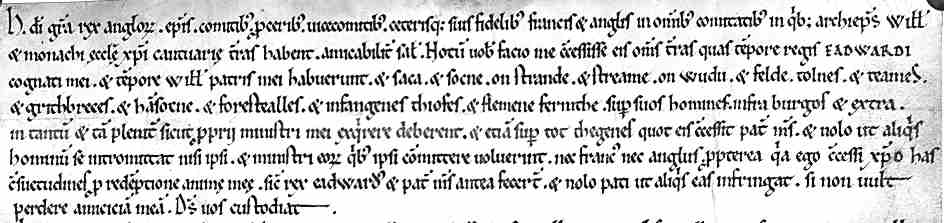 H. di grā rex anglor̄. epīs. comitib; ꝓcerib; uicecomitib; ceterisq; suis fidelib; francis & anglis in omīb; comitatib; in q̇b; archiep̄s Will̄
& monachi eccl̄ę xp̄i cantuarię t̄ras habent. amicabilit̄ sal̄. Notū uob̄ facio me c̄cessisse eis om̄s t̄ras quas t̄pore regis EADWARDI
cognati mei. & t̄pore Will̄ patris mei habuerunt. & saca. & socne. on strande. & streame. on wudu. & felde. tolnes. & teames.
& grithbreces. & hāsocne. & forestealles. & infangenes thiofes. & flemene fermthe. sup̄ suos homines infra burgos & extra.
in tantū & tā plenit̄ sicut ꝓprii ministri mei exq̇rere deberent. & etiā sup̄ tot thegenes quot eis c̄cessit pat̄ m̄s. & nolo ut aliq̇s
hominū se intromittat nisi ipsi. & ministri eor̄ q̇b; ipsi c̄mittere uoluerint. nec franc̄ nec anglus. ꝓpterea q̇a ego c̄cessi xp̄o has
c̄suetudines ꝓ redēptione animę meę. sic̄ rex eadward; & pat̄ m̄s antea fecer̄t. & nolo pati ut aliq̇s eas infringat. si non uult
perdere amiciciā meā. D̄s uos custodiat